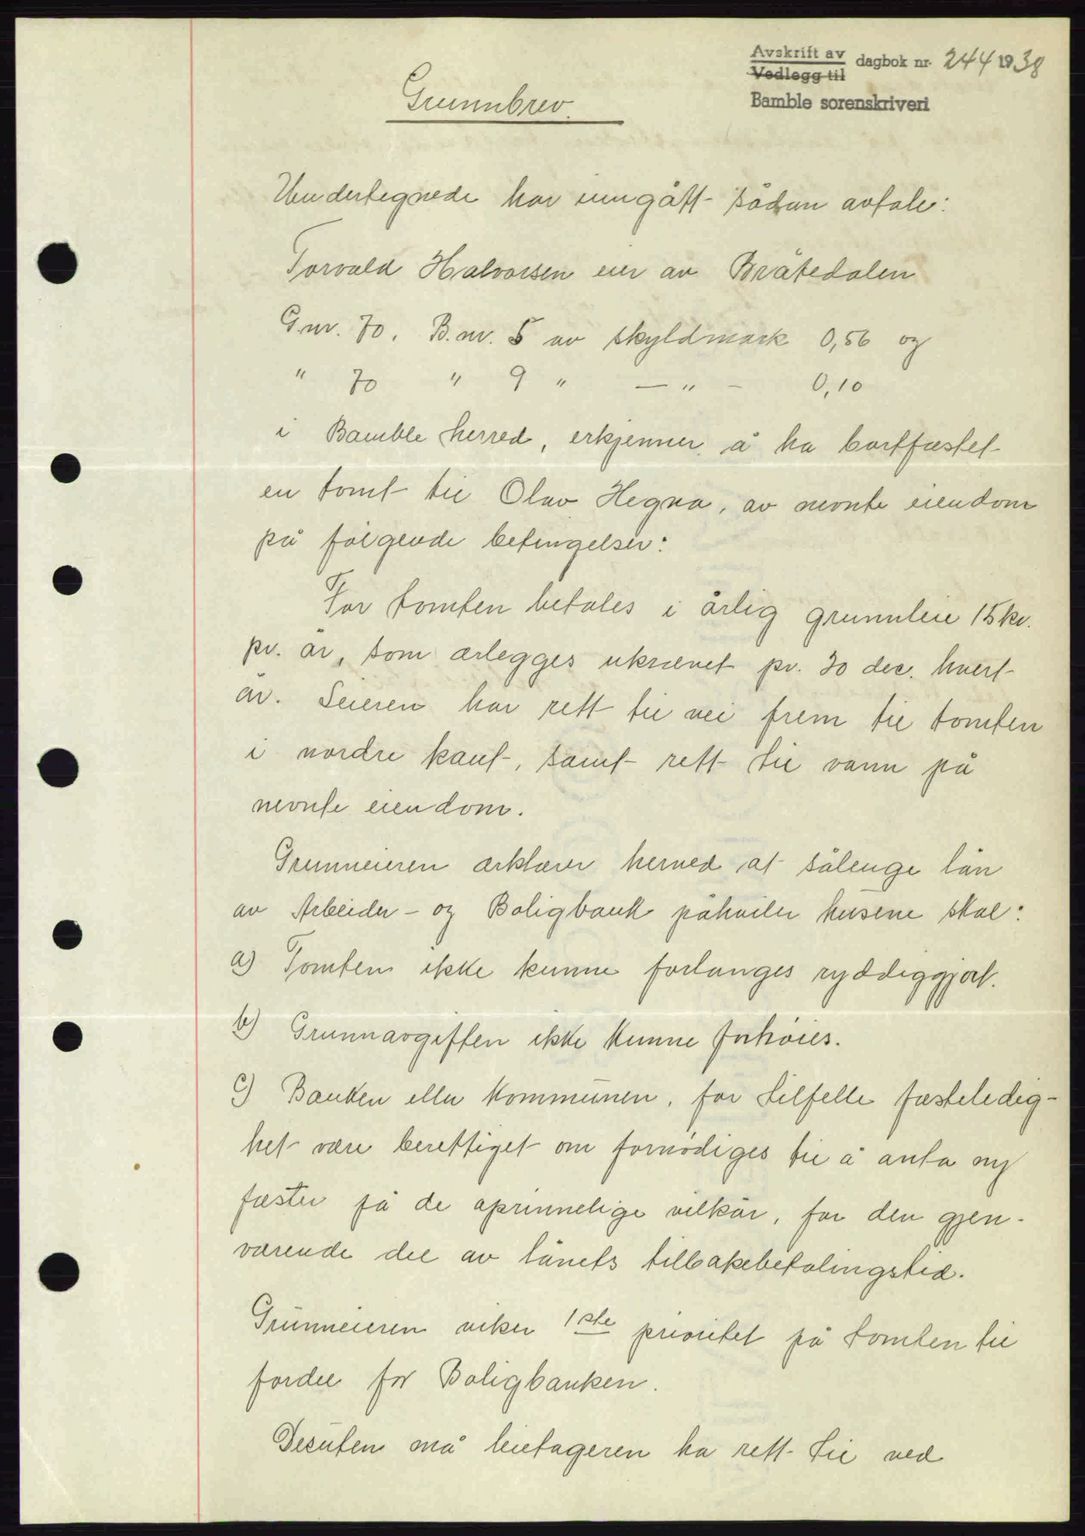 Avskrift av
Vedlegg til
dagbok nr. 244 1938
Bamble sorenskriveri
Grunnbrev.
Undertegnede har inngått sådan avtale:
Torvald Halvorsen eier av Bråtedalen
G.nr. 70. B.nr. 5 av skyldmark 0,56 og
" 70 " 9 " — " — 0,10
i Bamble herred, erkjenner å ha bortfæstet
en tomt til Olav Hegna, av nevnte eiendom
på følgende betingelser:
For tomten betales i årlig grunnleie 15 kr.
pr. år, som ærlegges ukrævet pr. 30 des. hvert
år. Leieren har rett til vei frem til tomten
i nordre kant, samt rett til vann på
nevnte eiendom.
Grunneieren ærklærer herved at sålenge lån
av Arbeider- og Boligbank påhviler husene skal:
a) Tomten ikke kunne forlanges ryddiggjort.
b) Grunnavgiften ikke kunne forhöies.
c) Banken eller Kommunen, for tilfelle fæsteledig-
het være berettiget om fornödiges til å anta ny
fæster på de oprinnelige vilkår, for den gjen-
værende del av lånets tilbakebetalingstid.
Grunneieren viker 1ste prioritet på tomten til
fordel for Boligbanken.
Desuten må leietageren ha rett til ved